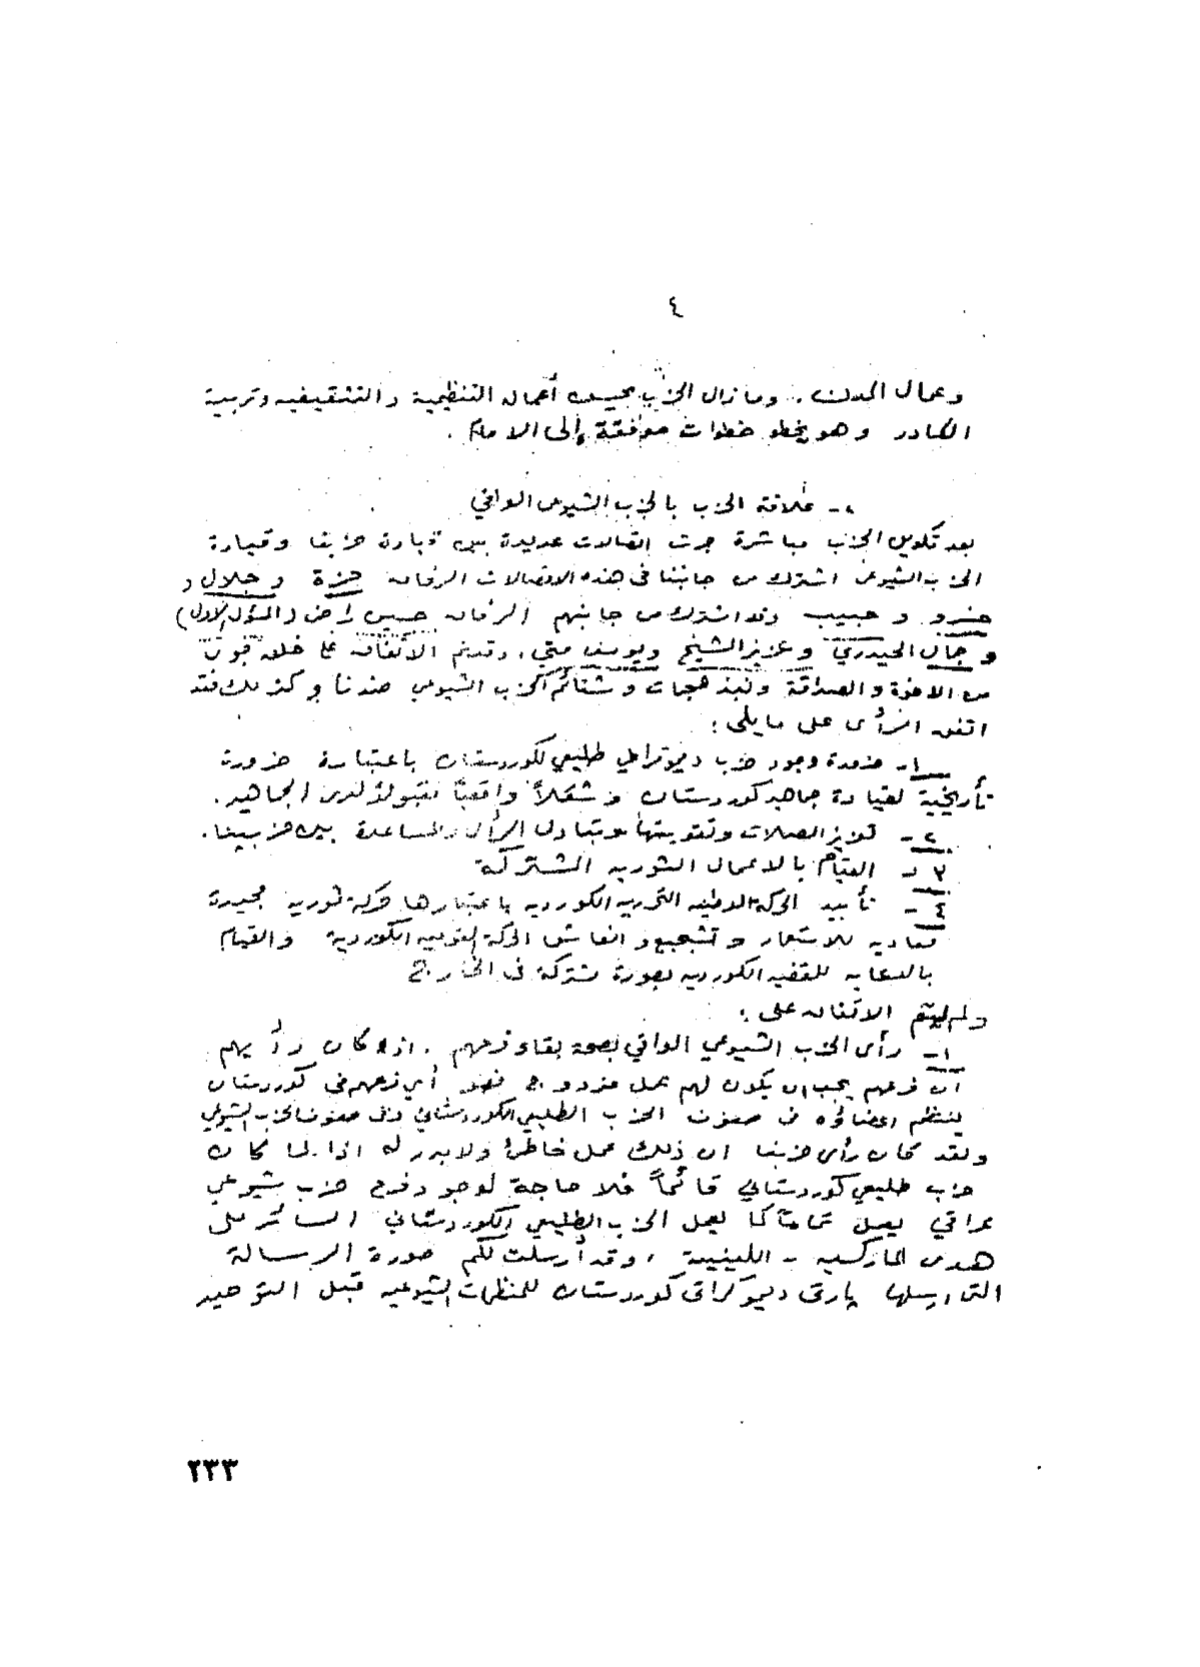 ٤
وعمال المدن. وما زال الحزب يحسن أعماله التنظيمية والتثقيفيه وتربية
الكادر وهو يخطو خطوات موفقة إلى الامام.
٤- علاقة الحزب بالحزب الشيوعي العراقي
بعد تكوين الحزب مباشرة جرت اتصالات عديدة بين قيادة حزبنا وقيادة
الحزب الشيوعي اشترك من جانبنا في هذه الاتصالات الرفاق حمزة وجلال و
خسرو وحبيب وقد اشترك من جانبهم الرفاق حسين راضي (المسؤل الاول)
وجمال الحيدري وعزيز الشيخ ويوسف متي، وقد تم الاتفاق على خلق
من الاخوة والصداقة ونبذ هجمات وشتائم الحزب الشيوعي ضدنا وكذلك فقد
اتفق الرأى على مايلي:
١- ضرورة وجود حزب ديموقراطي طليعي لكوردستان باعتباره ضرورة
تأريخية لقيادة جماهير كوردستان وشكلاً واقعياً مقبولاً لدى الجماهير.
٢- تعزيز الصلات وتقويتها وتبادل الرأى والمساعدة بين حزبينا.
٣- القيام بالاعمال الثوريه المشتركة
٤- تأييد الحركة الوطنيه التحرريه الكورديه باعتبارها حركة ثوريه مجيدة
معاديه للاستعمار وتشجيع وانعاش الحركة القوميه الكوردية والقيام
بالدعايه للقضيه الكورديه بصورة مشتركة في الخارج
ولم يتم الاتفاق على:
١- رأى الحزب الشيوعي العراقي بصحة بقاء فرعهم. اذ كان رأيهم
ان فرعهم يجب ان يكون لهم عمل مزدوج فهو أي فرعهم في كوردستان
ينتظم اعضاؤه في صفوف الحزب الطليعي الكوردستاني وفي صفوف الحزب الشيوعي
ولقد كان رأى حزبنا ان ذلك عمل خاطئ ولا مبرر له اذا لما كان
حزب طليعي كوردستاني قائماً فلا حاجة لوجود فرع حزب شيوعي
عراقي يعمل تماماً كما يعمل الحزب الطليعي الكوردستاني السائر على
هدى الماركسيه - اللينينية، وقد أرسلت لكم صورة الرسالة
التي ارسلها پارتى ديموكراتى كوردستان للمنظمات الشيوعيه قبل التوحيد
٢٣٣